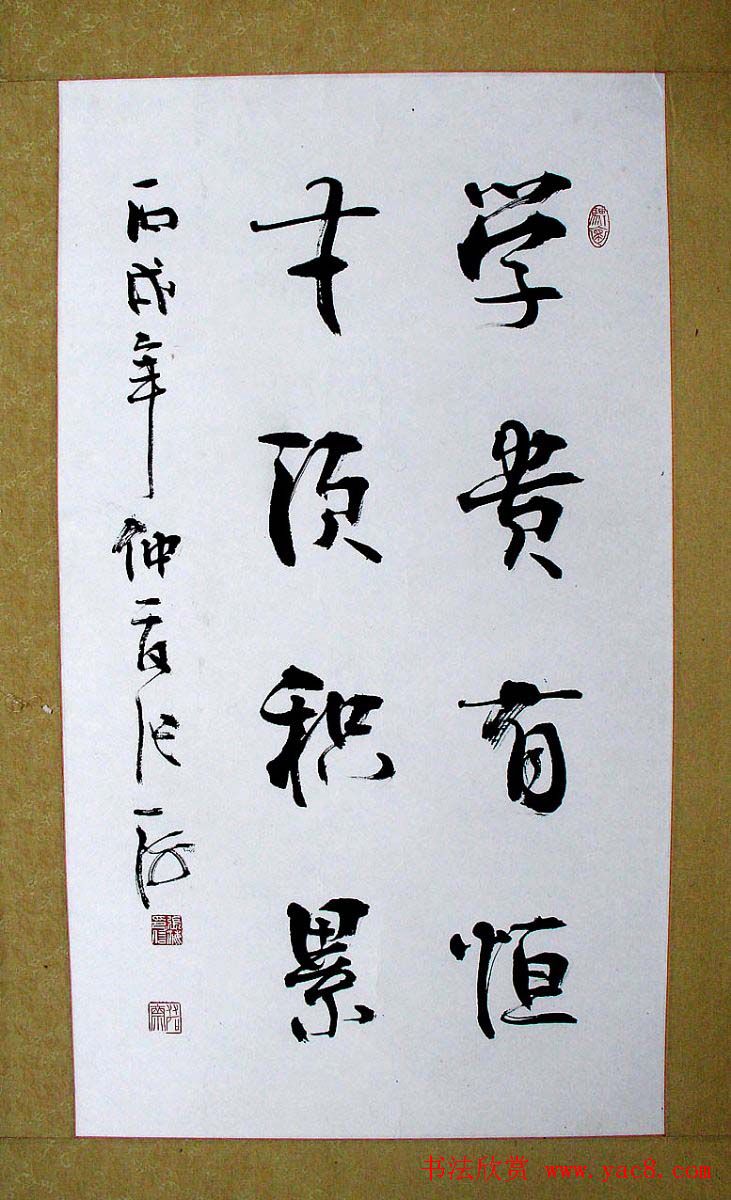 学贵有恒
才须积累
丙戌年仲夏张一
书法欣赏 www.yac8.com